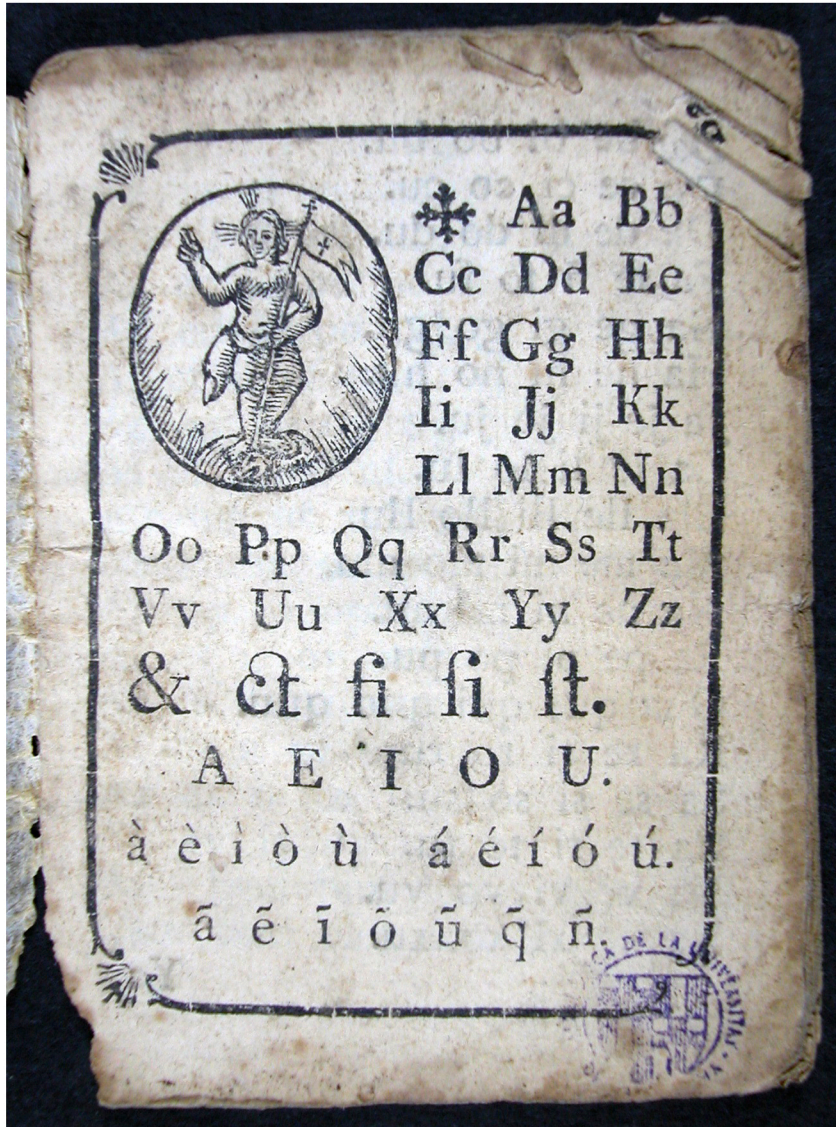 ✣ Aa Bb
Cc Dd Ee
Ff Gg Hh
Ii Jj Kk
Ll Mm Nn
Oo Pp Qq Rr Ss Tt
Vv Uu Xx Yy Zz
& ct fi ſi ſt.
A E I O U.
à è ì ò ù á é í ó ú.
ã ẽ ĩ õ ũ q̃ ñ.
CA DE LA UNIVERSITAT